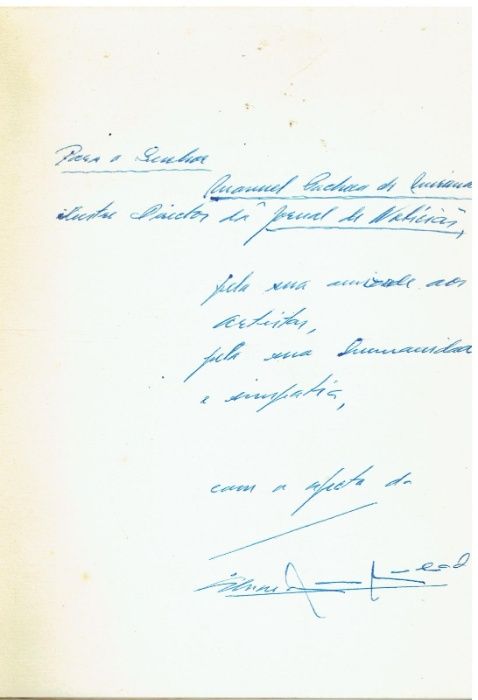 Para o Senhor
Manuel Pacheco de Miranda
ilustre Director do Jornal de Notícias,
pela sua amizade aos
artistas,
pela sua humanidade
e simpatia,
com o afecto do